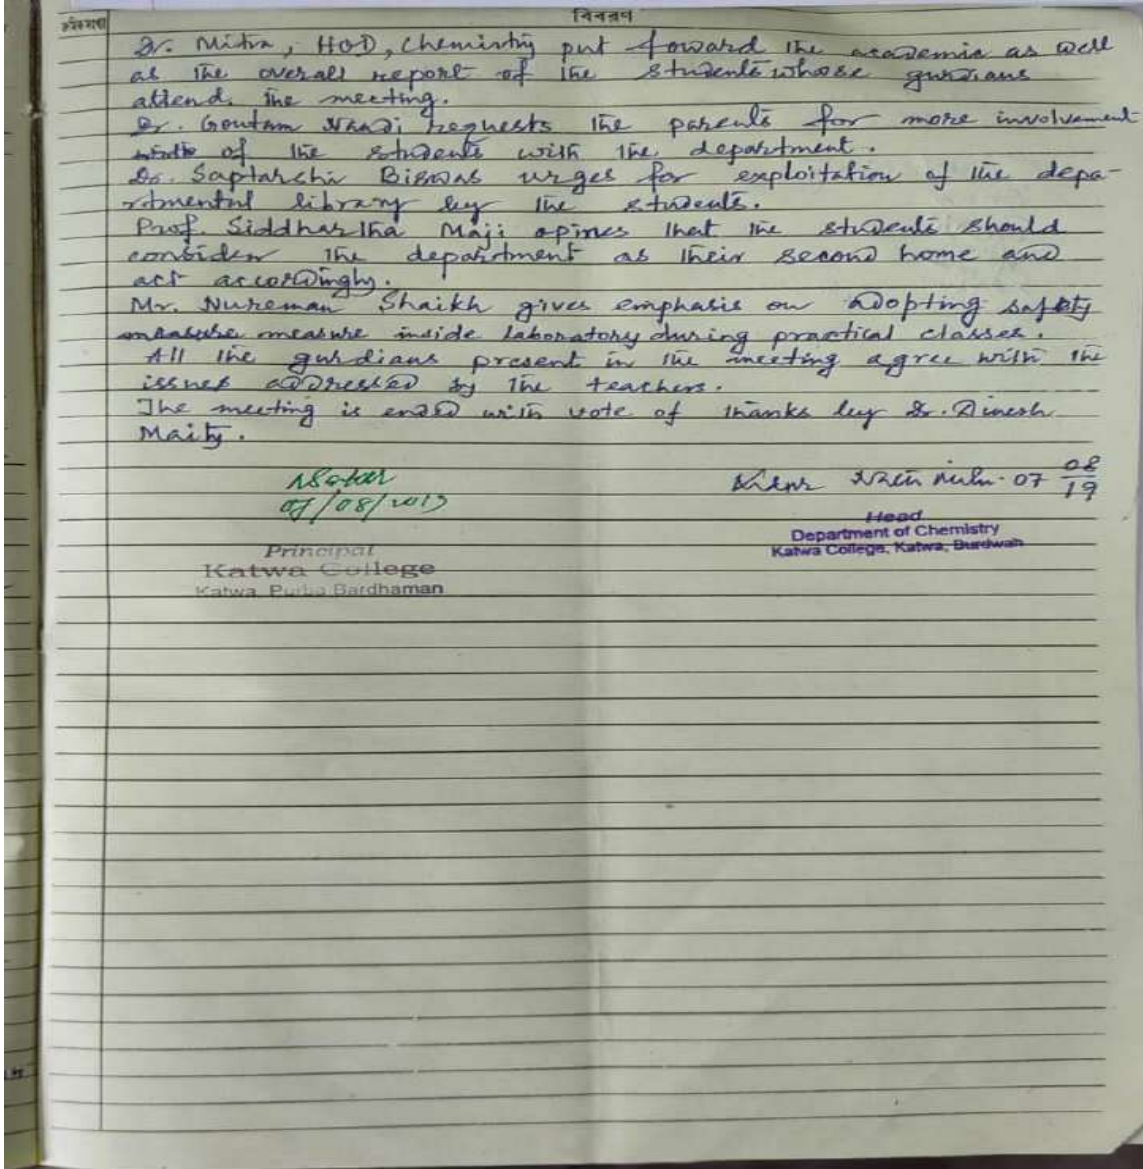 বিবরণ
Dr. Mitra, HOD, Chemistry put foward the academic as well
as the overall report of the students whose gurdians
attend the meeting.
Dr. Goutam Nandi requests the parents for more involvement
of the students with the department.
Dr. Saptarshi Biswas urges for exploitation of the depa-
rtmental library by the students.
Prof. Siddhartha Maji opines that the students should
consider the department as their second home and
act accordingly.
Mr. Nureman Shaikh gives emphasis on adopting safety
measure measure inside laboratory during practical classes.
All the gurdians present in the meeting agree with the
issues addressed by the teachers.
The meeting is ended with vote of thanks by Dr. Dinesh
Maity.
07/08/2019
07 08/19
Principal
Katwa College
Katwa, Purba Bardhaman
Head
Department of Chemistry
Katwa College, Katwa, Burdwan